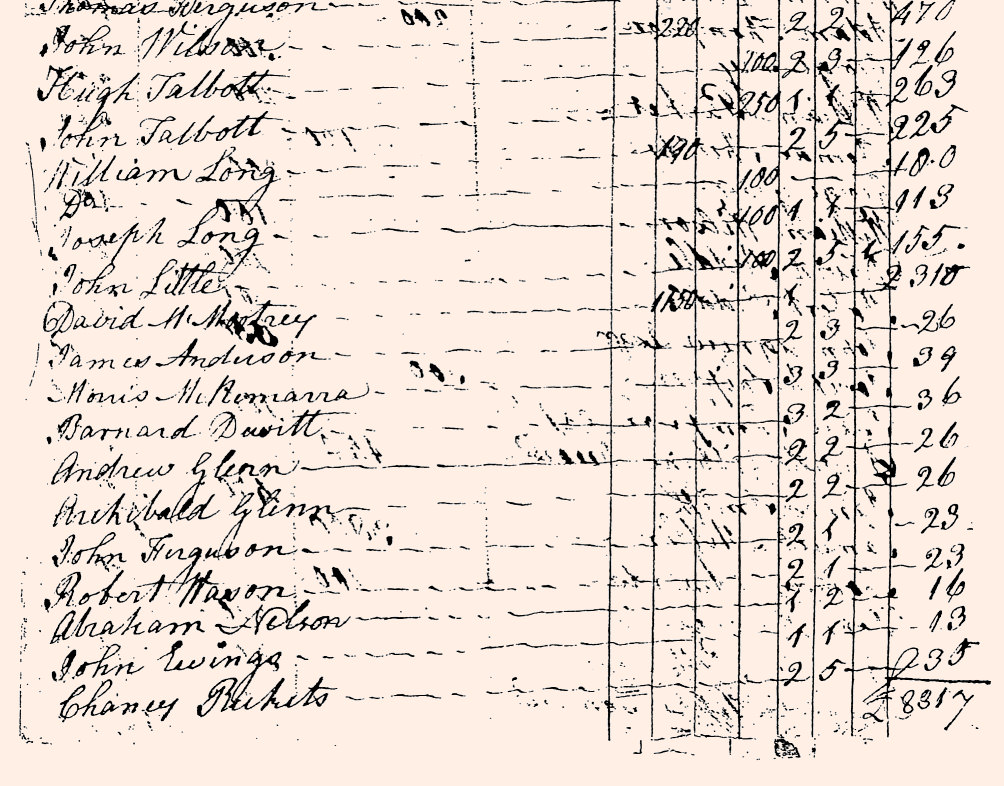 Thomas Ferguson 220 2 2 470
John Wilson 100 2 3 126
Hugh Talbott 250 1 1 263
John Talbott 190 2 5 225
William Long 100 100
Do 100 1 1 113
Joseph Long 100 2 5 155
John Little 1750 1 2310
David McMootrey 2 3 26
James Anderson 3 3 39
Morris McKomarra 3 2 36
Barnard Davitt 2 2 26
Andrew Glenn 2 2 26
Archibald Glenn 2 1 23
John Ferguson 2 1 23
Robert Wason 1 2 16
Abraham Nelson 1 1 13
John Ewings 2 5 235
Chaney Rickets £ 8317